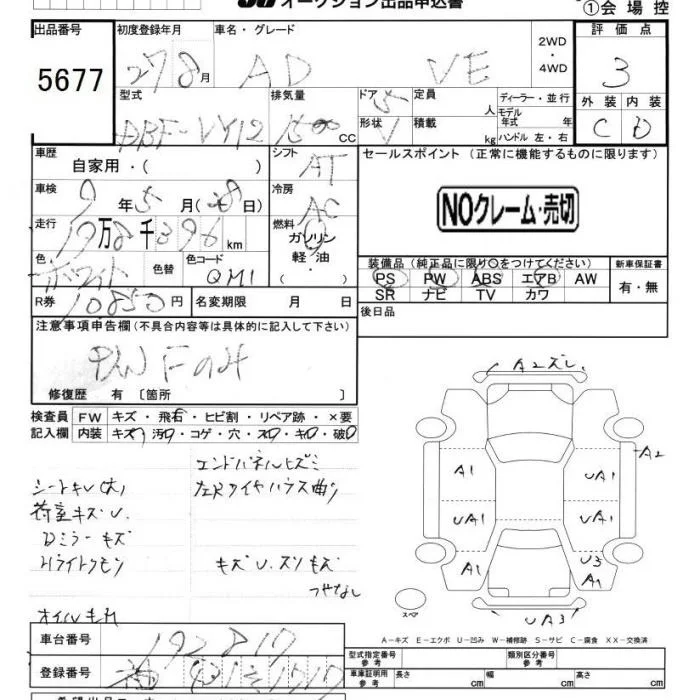 オークション出品申込書 ①会場控
出品番号 初度登録年月 車名・グレード 2WD・4WD 評価点
5677 27 8月 AD VE 3
型式 排気量 ドア 5 定員 人 ディーラー・並行 外装 内装
DBF-VY12 1500 CC 形状 V 積載 kg モデル年式 年 ハンドル 左・右 C D
車歴 自家用・( ) シフト AT セールスポイント (正常に機能するものに限ります)
車検 9年5月( 8日) 冷房 AC NOクレーム・売切
走行 19万8千396km 燃料 ガソリン 軽・油 ・( )
色 ホワイト 色替 色コード QM1 装備品 (純正品に限り○をつけてください) 新車保証書
PS PW ABS エアB AW 有・無
SR ナビ TV カワ
R券 10850円 名変期限 月 日 後日品
注意事項申告欄(不具合内容等は具体的に記入して下さい)
修復歴 有 〔箇所 〕
検査員 FW キズ・飛石・ヒビ割・リペア跡・×要
記入欄 内装 キズ・汚・コゲ・穴・スレ・キレ・破
エンドパネルヒズミ
シートキレ(大) 左Rタイヤハウス曲り
荷室キズU.
Dミラーキズ
Hライトクモリ キズU.スリキズ
つやなし
オイルモレ
A2ズレ
A2
A1 UA1
UA1 UA1
A1 U3
A1
UA3
スペア
A-キズ E-エクボ U-凹み W-補修跡 S-サビ C-腐食 XX-交換済
車台番号 192817 型式指定番号 参考 類別区分番号 参考
登録番号 車庫証明用 参考 長さ cm 幅 cm 高さ cm